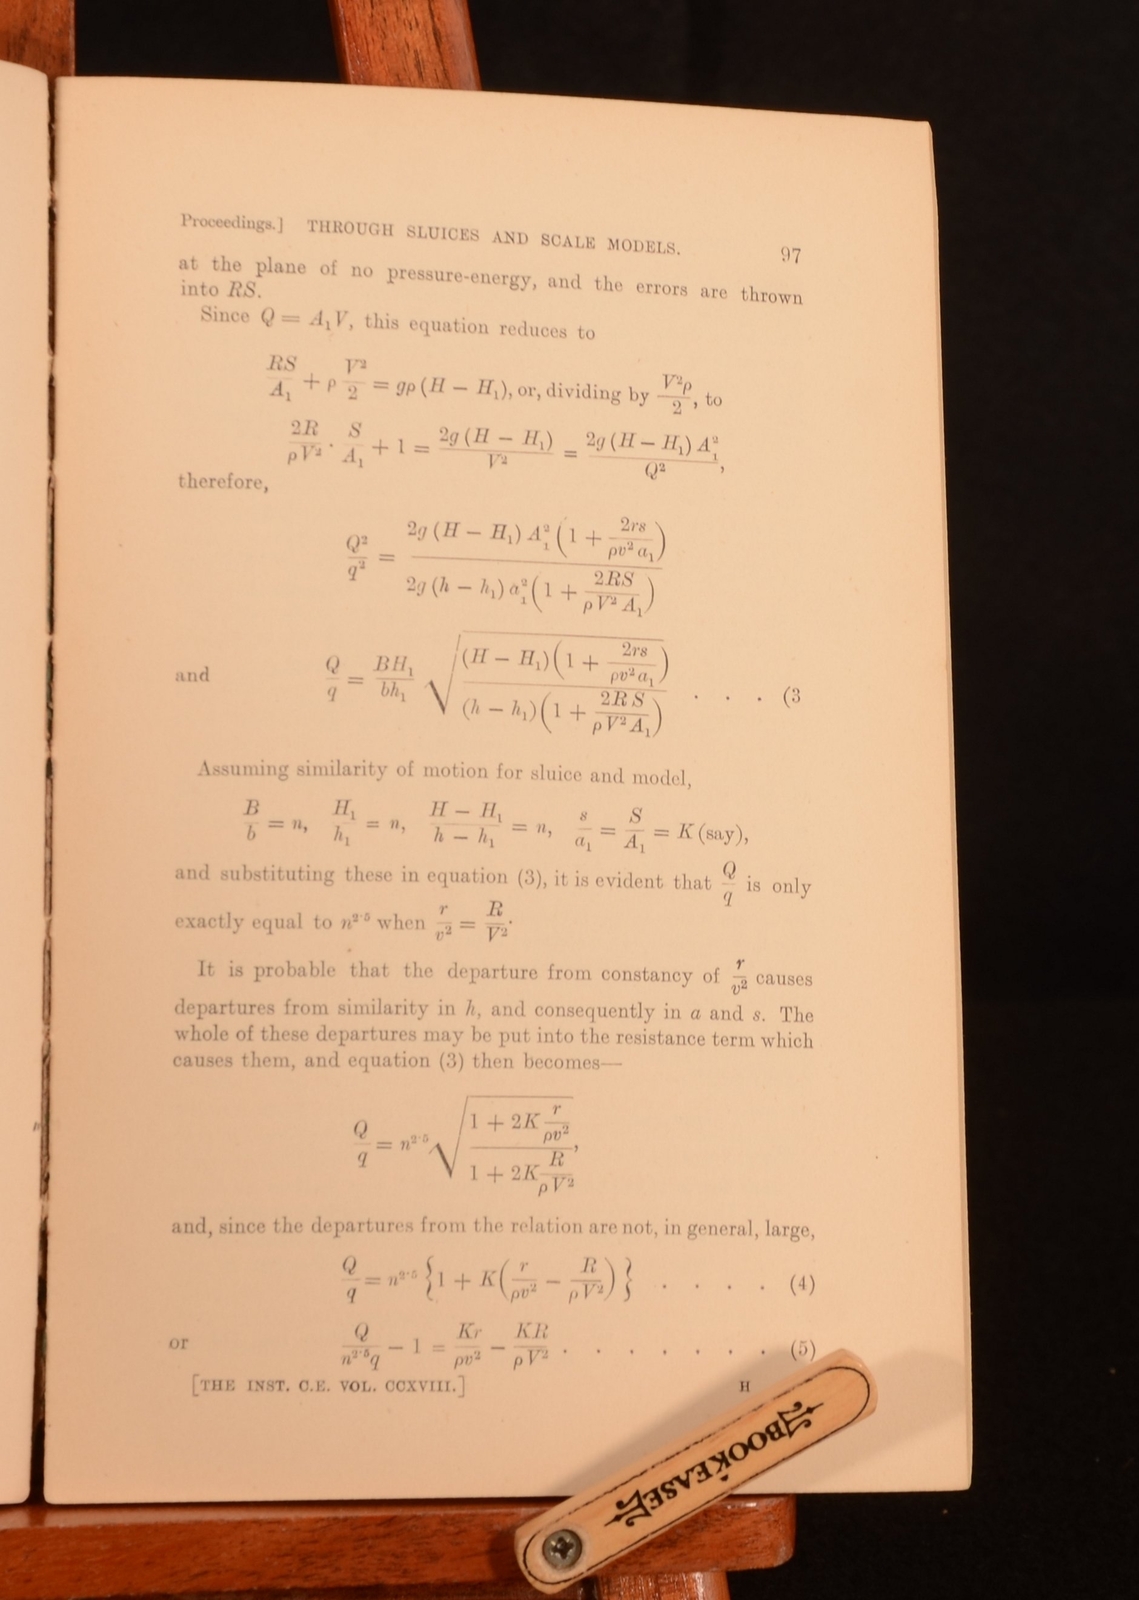 Proceedings.] THROUGH SLUICES AND SCALE MODELS. 97
at the plane of no pressure-energy, and the errors are thrown
into RS.
Since Q = A₁V, this equation reduces to
RS/A₁ + ρ V²/2 = gρ (H − H₁), or, dividing by V²ρ/2, to
2R/ρV² · S/A₁ + 1 = 2g (H − H₁)/V² = 2g (H − H₁) A₁²/Q²,
therefore,
Q²/q² = 2g (H − H₁) A₁² (1 + 2rs/ρv²a₁) / 2g (h − h₁) a₁² (1 + 2RS/ρV²A₁)
and Q/q = BH₁/bh₁ √((H − H₁)(1 + 2rs/ρv²a₁) / (h − h₁)(1 + 2RS/ρV²A₁)) . . . (3
Assuming similarity of motion for sluice and model,
B/b = n, H₁/h₁ = n, H − H₁/h − h₁ = n, s/a₁ = S/A₁ = K (say),
and substituting these in equation (3), it is evident that Q/q is only
exactly equal to n²·⁵ when r/v² = R/V².
It is probable that the departure from constancy of r/v² causes
departures from similarity in h, and consequently in a and s. The
whole of these departures may be put into the resistance term which
causes them, and equation (3) then becomes—
Q/q = n²·⁵ √(1 + 2K r/ρv² / 1 + 2K R/ρV²),
and, since the departures from the relation are not, in general, large,
Q/q = n²·⁵ {1 + K(r/ρv² − R/ρV²)} . . . . (4)
or Q/n²·⁵q − 1 = Kr/ρv² − KR/ρV² . . . . . . . (5)
[THE INST. C.E. VOL. CCXVIII.] H
BOOKEASEL